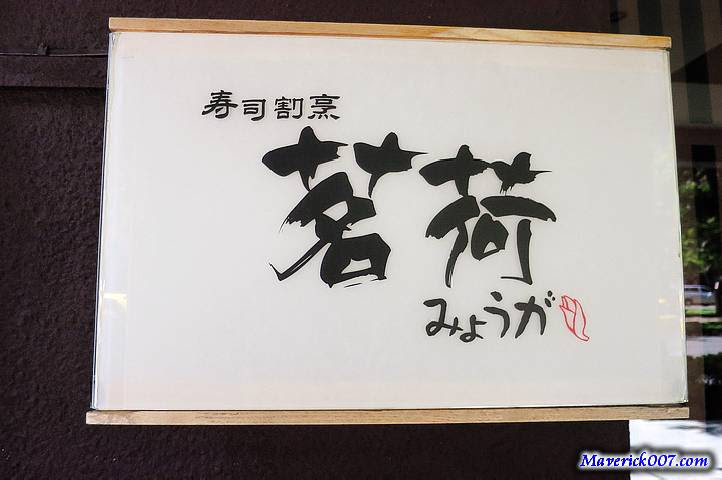 寿司割烹
茗荷
みょうが
Maverick007.com